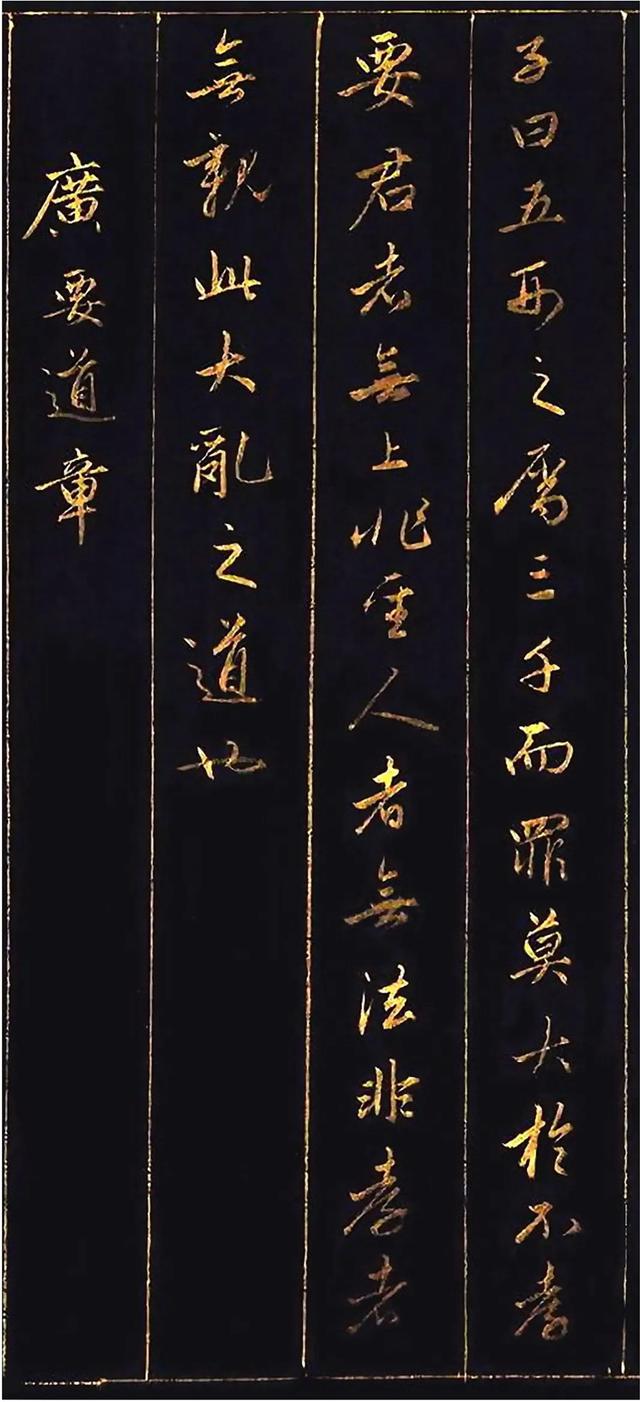 子曰五刑之屬三千而罪莫大於不孝
要君者無上非聖人者無法非孝者
無親此大亂之道也
廣要道章